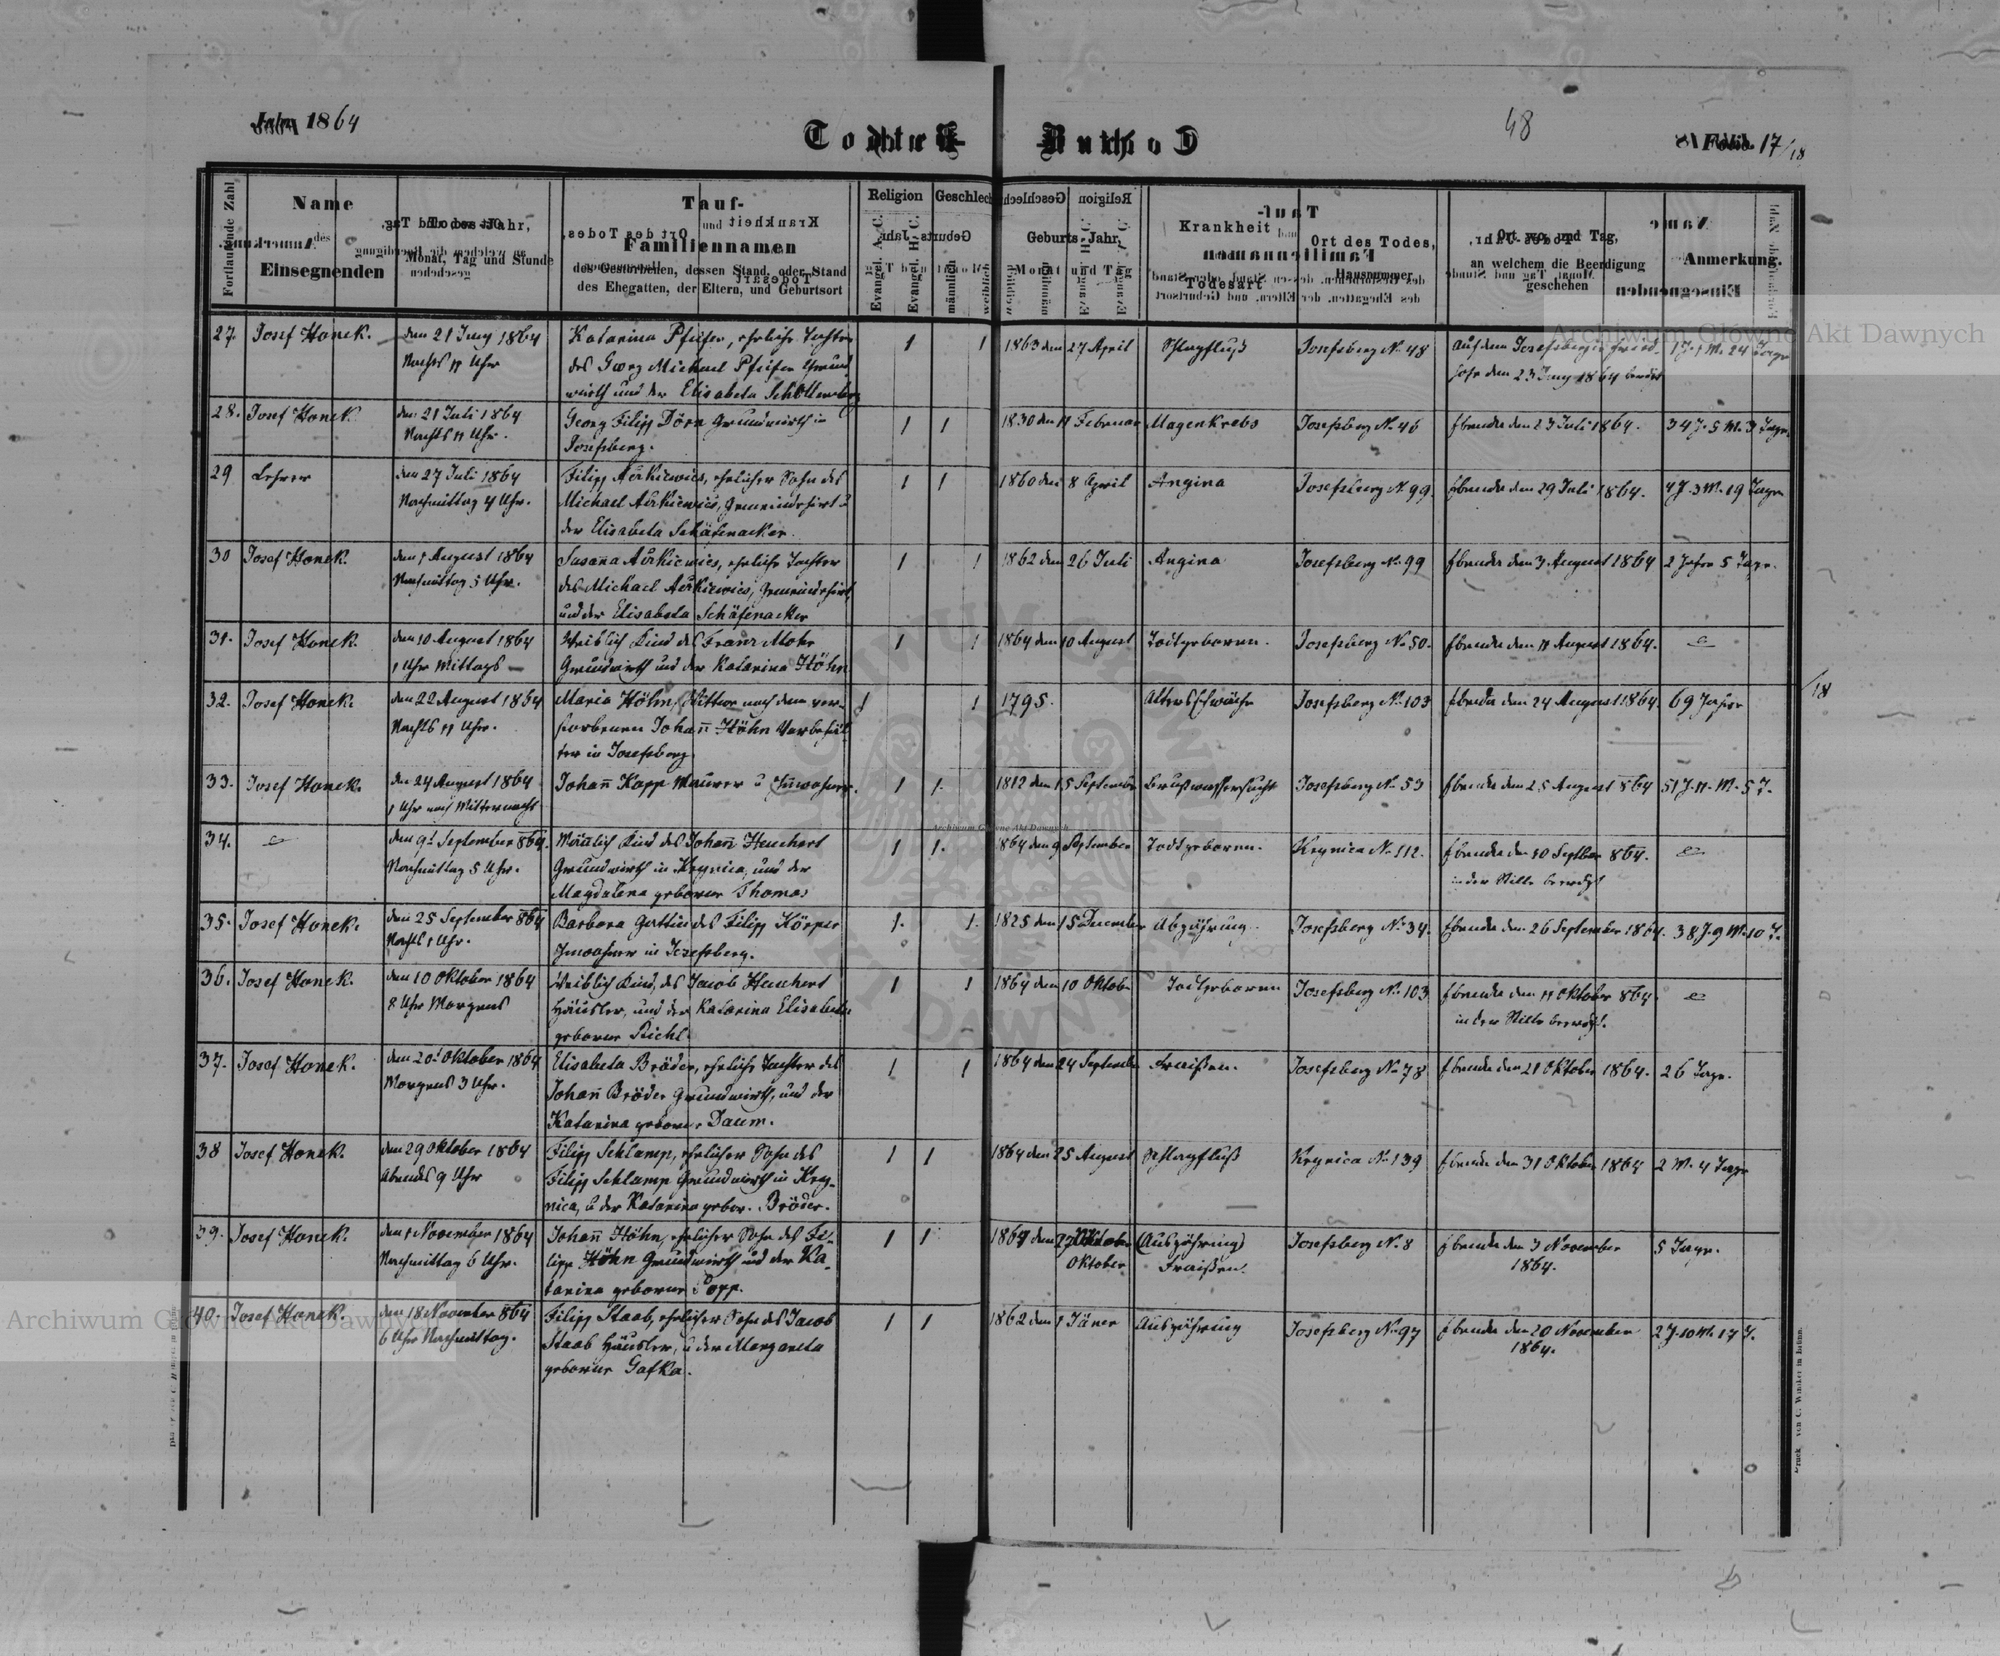 Jahr 1864
Todten-Buch
48
Folio 17/18
Fortlaufende Zahl
Name
des
Einsegnenden
Todes-Jahr,
Monat, Tag und Stunde
Tauf-
und
Familiennamen
des Gestorbenen, dessen Stand, oder Stand
des Ehegatten, der Eltern, und Geburtsort
Religion
Evangel. A. C.
Evangel. H. C.
Geschlecht
männlich
weiblich
Geburts-Jahr,
Monat und Tag
Krankheit
und
Todesart
Ort des Todes,
Hausnummer
Ort wo, und Tag,
an welchem die Beerdigung
geschehen
Anmerkung.
27. Josef Hanek. den 21 Juny 1864 Katarina Pfeifer, eheliche Tochter 1 1 1863 den 27 April Schlagfluß Josefsberg No. 48 auf dem Josefsberger Fried- 1 J. 1 M. 24 Tage
Nachts 11 Uhr des Georg Michael Pfeifer Grund- hofe den 23 Juny 1864
wirth und der Elisabeta Schottenberg
28. Josef Hanek den 21 Juli 1864 Georg Filipp Dörn Grundwirth in 1 1 1830 den 11 Februar Magenkrebs Josefsberg No. 46 Ebenda den 23 Juli 1864. 34 J. 5 M. 3 Tage
Nachts 11 Uhr. Josefsberg.
29 Lehrer den 27 Juli 1864 Filipp Aĕrkiewics, ehelicher Sohn des 1 1 1860 den 8 April Angina Josefsberg No. 99. Ebenda den 29 Juli 1864. 4 J. 3 M. 19 Tage
Nachmittag 4 Uhr. Michael Aĕrkiewics, Gemeindehirt u
der Elisabeta Schäfenacker.
30 Josef Hanek. den 1 August 1864 Susanna Aĕrkiewics, eheliche Tochter 1 1 1862 den 26 Juli Angina Josefsberg No. 99 Ebenda den 3 August 1864 2 Jahre 5 Tage.
Nachmittag 5 Uhr. des Michael Aĕrkiewics, Gemeindehirt
und der Elisabeta Schäfenacker
31. Josef Hanek. den 10 August 1864 Weiblich Kind des Franz Mohr 1 1 1864 den 10 August Todtgeboren. Josefsberg No. 50. Ebenda den 11 August 1864.
1 Uhr Mittags Grundwirth und der Katarina Höhn
32. Josef Hanek. den 22 August 1864 Maria Höhn, Wittwe nach dem ver- 1 1 1795. Altersschwäche Josefsberg No. 103 Ebenda den 24 August 1864. 69 Jahre
Nachts 11 Uhr. storbenen Johañ Höhn Vorbehäl-
ter in Josefsberg
/18
33. Josef Hanek. den 24 August 1864 Johañ Kopp Maurer u Inwohner. 1 1. 1812 den 15 September Brustwassersucht Josefsberg No. 53 Ebenda den 25 August 864 51 J. 11. M. 5 T.
1 Uhr nach Mitternacht
34. den 9t September 864. Mäñlich Kind des Johañ Heuchert 1 1. 1864 den 9 September Todtgeboren. Krynica No. 112. Ebenda den 10 Septber 864.
Nachmittag 5 Uhr. Grundwirth in Krynica, und der in der Stille beerdigt
Magdalena geborene Thomas
35. Josef Hanek. den 25 September 864 Barbara Gattin des Filipp Körper 1. 1. 1825 den 15 December Abzährung. Josefsberg No. 34. Ebenda den 26 September 1864. 38 J. 9 M. 10 T.
Nachts 1 Uhr. Inwohner in Josefsberg.
36. Josef Hanek. den 10 Oktober 1864 Weiblich Kind, des Jacob Heuchert 1 1 1864 den 10 Oktob. Todtgeboren Josefsberg No. 103 Ebenda den 11 Oktober 864.
8 Uhr Morgens Häusler, und der Katarina Elisabeta in der Stille beerdigt.
geborene Richl.
37. Josef Hanek. den 20t Oktober 1864 Elisabeta Bröder, eheliche Tochter des 1 1 1864 den 24 September Fraißen. Josefsberg No. 78 Ebenda den 21 Oktober 1864. 26 Tage.
Morgens 3 Uhr. Johañ Bröder Grundwirth, und der
Katarina geborene Daum.
38 Josef Hanek. den 29 Oktober 1864 Filipp Schlamp, ehelicher Sohn des 1 1 1864 den 25 August Schlagfluß Krynica No. 139 Ebenda den 31 Oktober 1864 2 M. 4 Tage
Abends 9 Uhr Filipp Schlamp Grundwirth in Kry-
nica, u der Katarina gebor. Bröder.
39. Josef Hanek. den 1 November 1864 Johañ Höhn, ehelicher Sohn des Fi- 1 1 1864 den 27 Oktober (Auszährung) Josefsberg No. 8 Ebenda den 3 November 5 Tage.
Nachmittag 6 Uhr. lipp Höhn Grundwirth und der Ka- Oktober Fraißen. 1864.
tarina geborene Popp.
40. Josef Hanek. den 18 November 864 Filipp Staab, ehelicher Sohn des Jacob 1 1 1862 den 1 Jäner Auszährung Josefsberg No. 97 Ebenda den 20 November 2 J. 10 M. 17 T.
6 Uhr Nachmittag. Staab Häusler, u der Margareta 1864.
geborene Gafka.
Druck von C. Winiker in Brünn.
Archiwum Główne Akt Dawnych
Archiwum Główne Akt Dawnych
Archiwum Główne Akt Dawnych